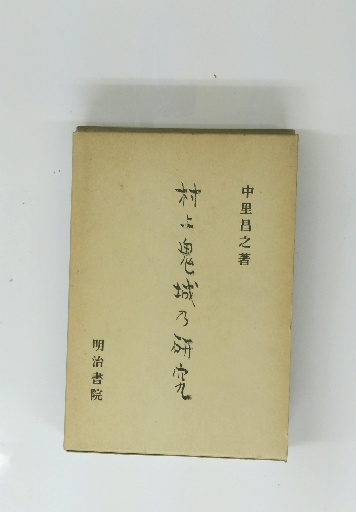 中里昌之著
村上鬼城乃研究
明治書院